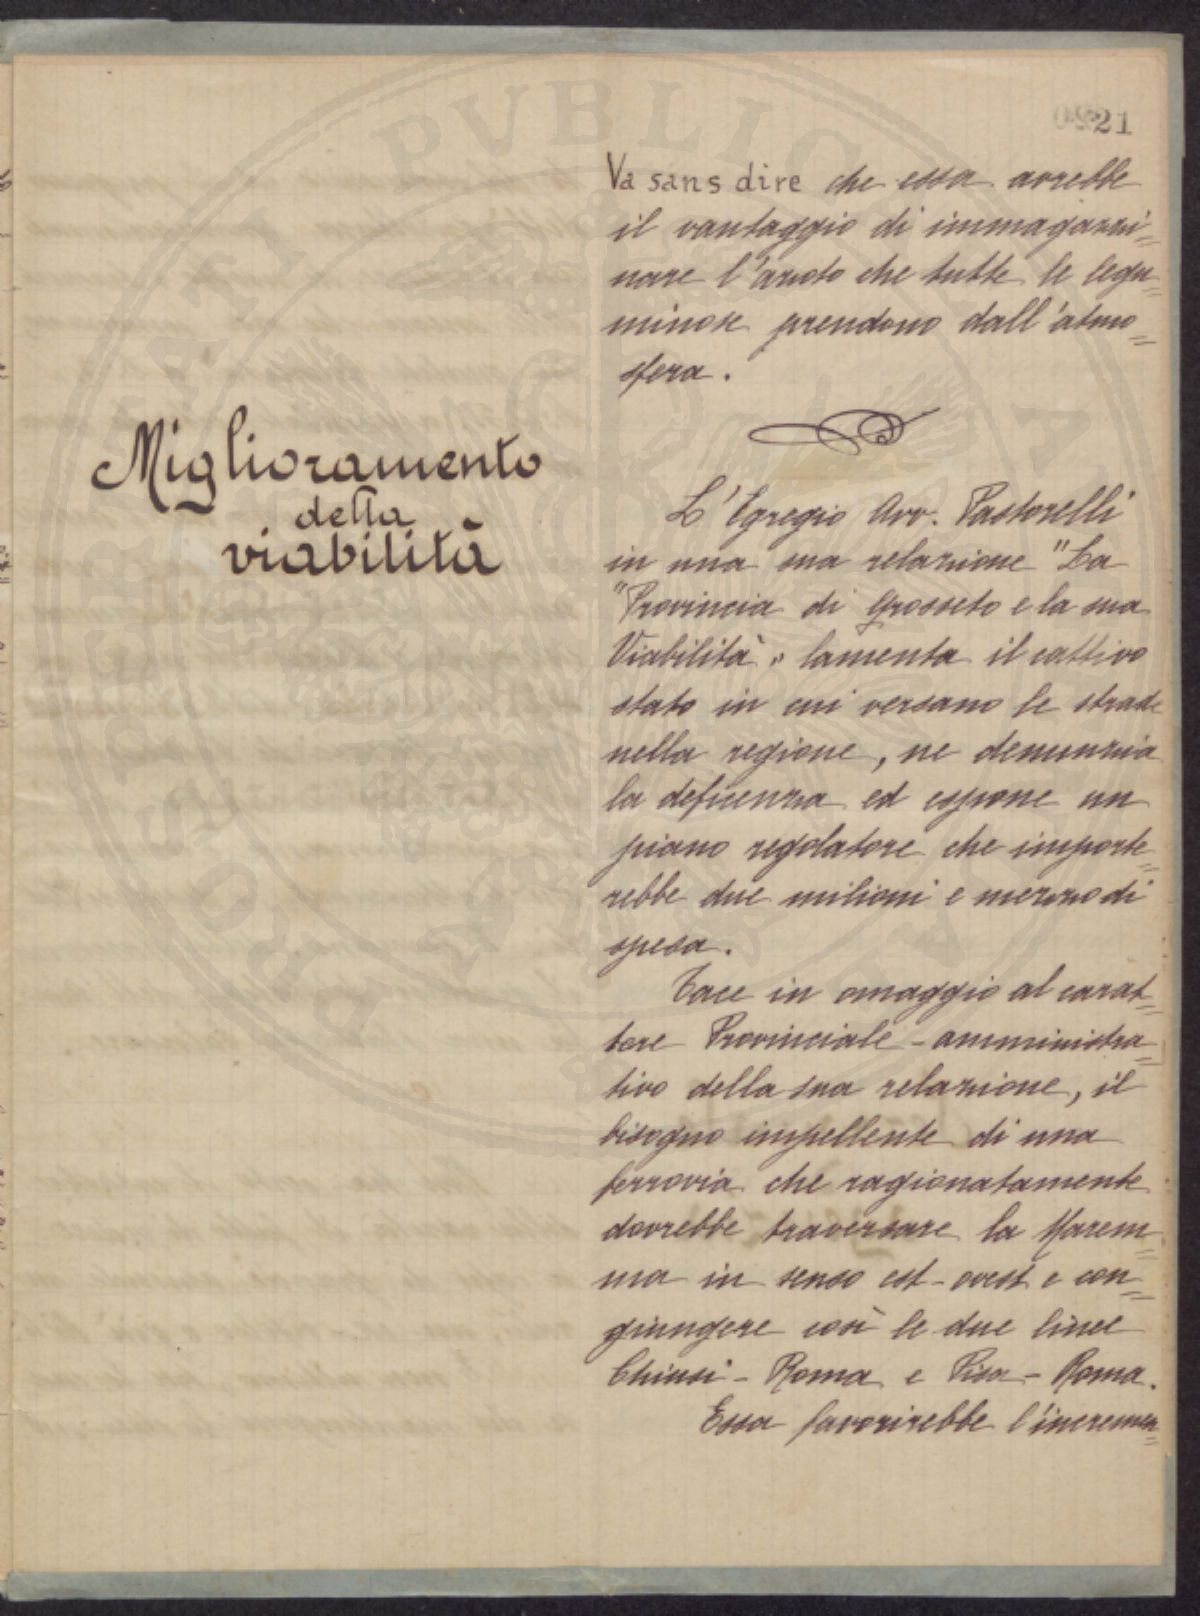 0921
Va sans dire che essa avrebbe
il vantaggio di immagazzi=
nare l'azoto che tutte le legu=
minose prendono dall'atmo=
sfera.
Miglioramento
della
viabilità
L'Egregio Avv. Pastorelli
in una sua relazione "La
"Provincia di Grosseto e la sua
Viabilità„ lamenta il cattivo
stato in cui versano le strade
nella regione, ne denunzia
la deficenza ed espone un
piano regolatore che importe=
rebbe due milioni e mezzo di
spesa.
Tace in omaggio al carat=
tere Provinciale-amministra=
tivo della sua relazione, il
bisogno impellente di una
ferrovia che ragionatamente
dovrebbe traversare la Marem=
ma in senso est-ovest e con=
giungere così le due linee
Chiusi-Roma e Pisa-Roma.
Essa favorirebbe l'incremen=